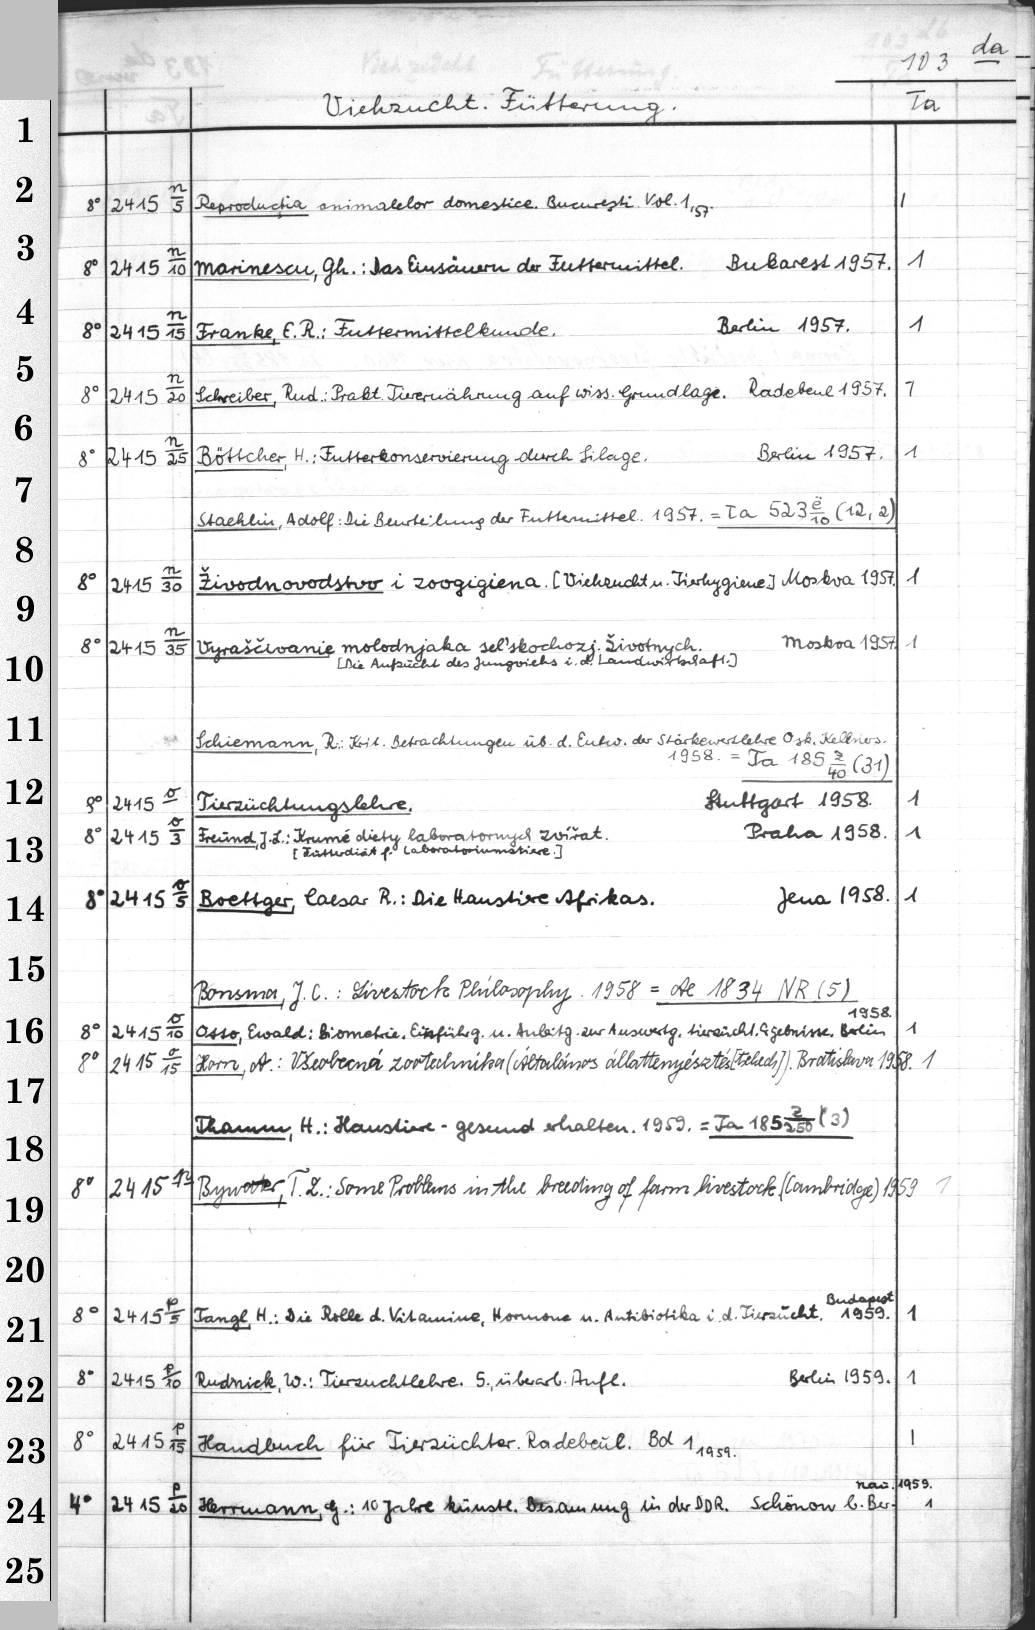 103 da
Viehzucht. Fütterung. Ta
1
2
8° 2415 n/5 Reproducția animalelor domestice. București. Vol. 1,57. 1
3
8° 2415 n/10 Marinescu, Gh.: Das Einsäuern der Futtermittel. Bukarest 1957. 1
4
8° 2415 n/15 Franke, E. R.: Futtermittelkunde. Berlin 1957. 1
5
8° 2415 n/20 Schreiber, Rud.: Prakt. Tierernährung auf wiss. Grundlage. Radebeul 1957. 1
6
8° 2415 n/25 Böttcher, H.: Futterkonservierung durch Silage. Berlin 1957. 1
7
Staehlin, Adolf: Die Beurteilung der Futtermittel. 1957. = Ta 523 ë/10 (12,2)
8
8° 2415 n/30 Živodnovodstvo i zoogigiena. [Viehzucht u. Tierhygiene] Moskva 1957. 1
9
8° 2415 n/35 Vyraščivanie molodnjaka sel'skochozj. Životnych. Moskva 1957. 1
[Die Aufzucht des Jungviehs i. d. Landwirtschaft.]
10
11
Schiemann, R.: Krit. Betrachtungen üb. d. Entw. der Stärkewertlehre Osk. Kellners.
1958. = Ta 185 z/40 (31)
12
8° 2415 o Tierzüchtungslehre. Stuttgart 1958. 1
8° 2415 o/3 Freund, J.L.: Krumé diety laboratornych zvířat. Praha 1958. 1
13
[Futterdiät f. Laboratoriumstiere.]
14
8° 2415 o/5 Boettger, Caesar R.: Die Haustiere Afrikas. Jena 1958. 1
15
Bonsma, J. C.: Livestock Philosophy. 1958 = Ae 1834 NR (5)
1958.
16
8° 2415 o/10 Otto, Ewald: Biometrie. Einführg. u. Anleitg. zur Auswertg. tierzücht. Ergebnisse. Berlin 1
8° 2415 o/15 Horn, A.: Všeobecná zootechnika (Általános állattenyésztés). Bratislava 1958. 1
17
Thamm, H.: Haustiere - gesund erhalten. 1959. = Ta 185 z/250 (3)
18
8° 2415 p Bywater, T. L.: Some Problems in the breeding of farm livestock (Cambridge) 1959 1
19
20
Budapest
8° 2415 p/5 Tangl, H.: Die Rolle d. Vitamine, Hormone u. Antibiotika i. d. Tierzücht. 1959. 1
21
8° 2415 p/10 Rudnick, W.: Tierzuchtlehre. 5., überarb. Aufl. Berlin 1959. 1
22
8° 2415 p/15 Handbuch für Tierzüchter. Radebeul. Bd 1 1959. 1
23
nau. 1959.
4° 2415 p/20 Herrmann, G.: 10 Jahre künstl. Besamung in der DDR. Schönow b. Ber- 1
24
25